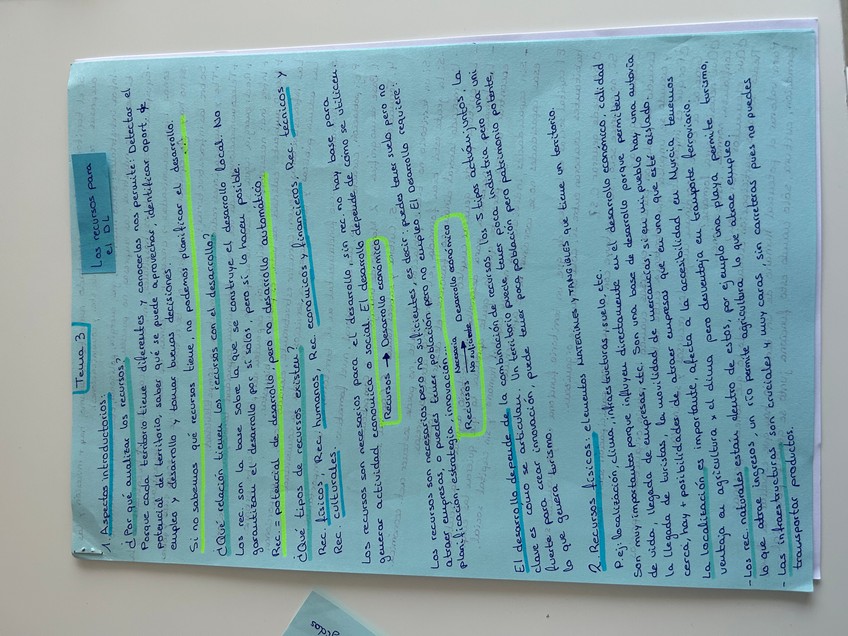 Tema 3
Los recursos para
el DL
1. Aspectos introductorios:
¿Por qué analizar los recursos?
Porque cada territorio tiene diferentes y conocerlos nos permite: Detectar el
potencial del territorio, saber qué se puede aprovechar, identificar oport. de
empleo y desarrollo y tomar buenas decisiones.
Si no sabemos que recursos tiene, no podemos planificar el desarrollo.
¿Qué relación tienen los recursos con el desarrollo local?
Los rec. son la base sobre la que se construye el desarrollo local. No
garantizan el desarrollo por sí solos, pero sí lo hacen posible.
Rec. = potencial de desarrollo, pero no desarrollo automático.
¿Qué tipos de recursos existen?
Rec físicos, Rec. humanos, Rec. económicos y financieros, Rec. técnicos y
Rec culturales.
Los recursos son necesarios para el desarrollo, sin rec. no hay base para
generar actividad económica o social. El desarrollo depende de cómo se utilicen.
Recursos → Desarrollo económico
Los recursos son necesarios pero no suficientes, es decir: puedes tener suelo pero no
atraer empresas, o puedes tener población pero no empleo. El Desarrollo requiere:
planificación, estrategia, innovación...
Recursos Necesario → No suficiente Desarrollo económico
El desarrollo depende de la combinación de recursos, los 5 tipos actúan juntos, la
clave es como se articulan. Un territorio puede tener poca industria pero una uni
fuerte para crear innovación, puede tener poca población pero patrimonio potente,
lo que genera turismo.
2. Recursos físicos: elementos MATERIALES y TANGIBLES que tiene un territorio.
P.ej: localización, clima, infraestructuras, suelo, etc.
Son muy importantes porque influyen directamente en el desarrollo económico, calidad
de vida, llegada de empresas, etc. Son una base de desarrollo porque permiten
la llegada de turistas, la movilidad de mercancías, si en un pueblo hay una autovía
cerca, hay + posibilidades de atraer empresas que en uno que esté aislado.
La localización es importante, afecta a la accesibilidad, en Murcia tenemos
ventaja de agricultura x el clima pero desventaja en transporte ferroviario.
- Los rec naturales están dentro de estos, por ejemplo una playa permite turismo,
lo que atrae ingresos, un río permite agricultura lo que atrae empleo.
- Las infraestructuras son cruciales y muy caras, sin carreteras pues no puedes
transportar productos.